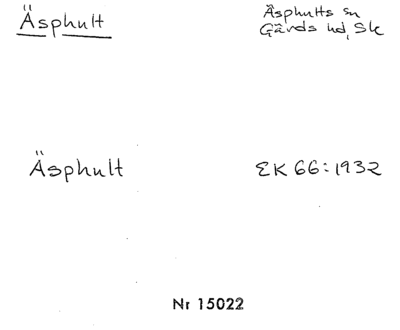 Äsphult
Äsphults sn
Gärds hd, Sk
Äsphult
EK 66:1932
Nr 15022